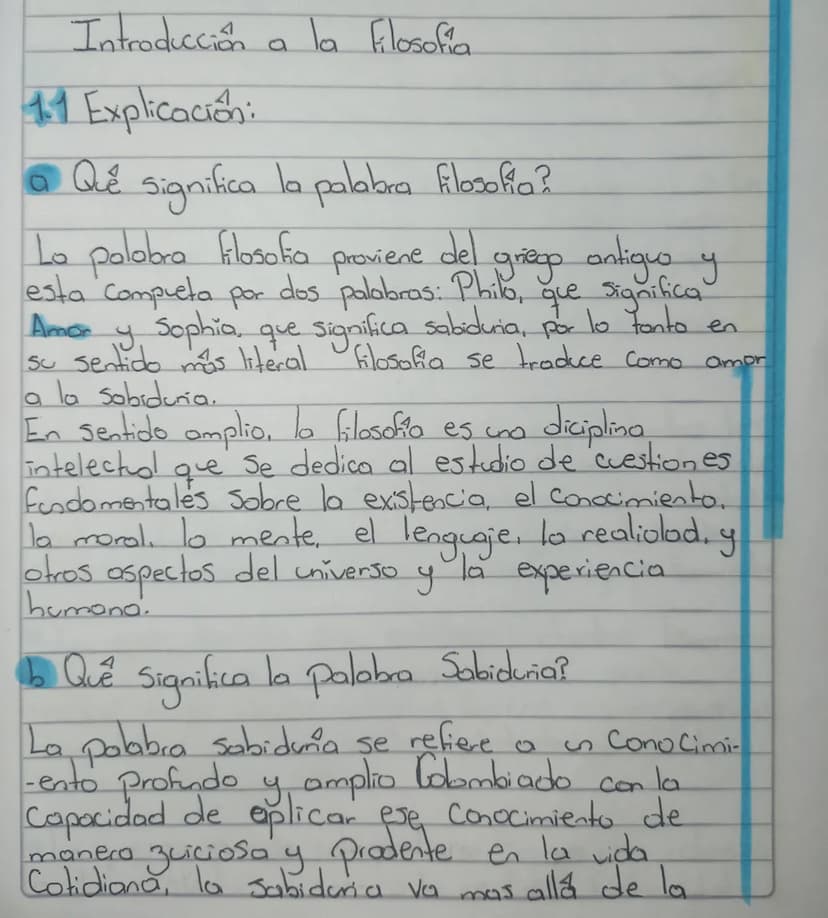 Introducción a la Filosofía
1.1 Explicación:
a Qué significa la palabra filosofía?
La palabra filosofia proviene del griego antiguo y
esta compueta por dos palabras: Philo, que significa
Amor y Sophia, que significa sabiduria, por lo tanto en
su sentido más literal filosofía se traduce como amor
a la sabiduria.
En sentido amplio, la filosofía es una diciplina
intelectual que se dedica al estudio de cuestiones
fundamentales sobre la existencia, el conocimiento,
la moral, la mente, el lenguaje, la realidad, y
otros aspectos del universo y la experiencia
humana.
b Qué significa la palabra Sabiduria?
La palabra sabiduría se refiere a un Conocimi-
-ento profundo y amplio Colombiado con la
Capacidad de aplicar ese conocimiento de
manera juiciosa y prodente en la vida
Cotidiana, la sabiduria va mas allá de la